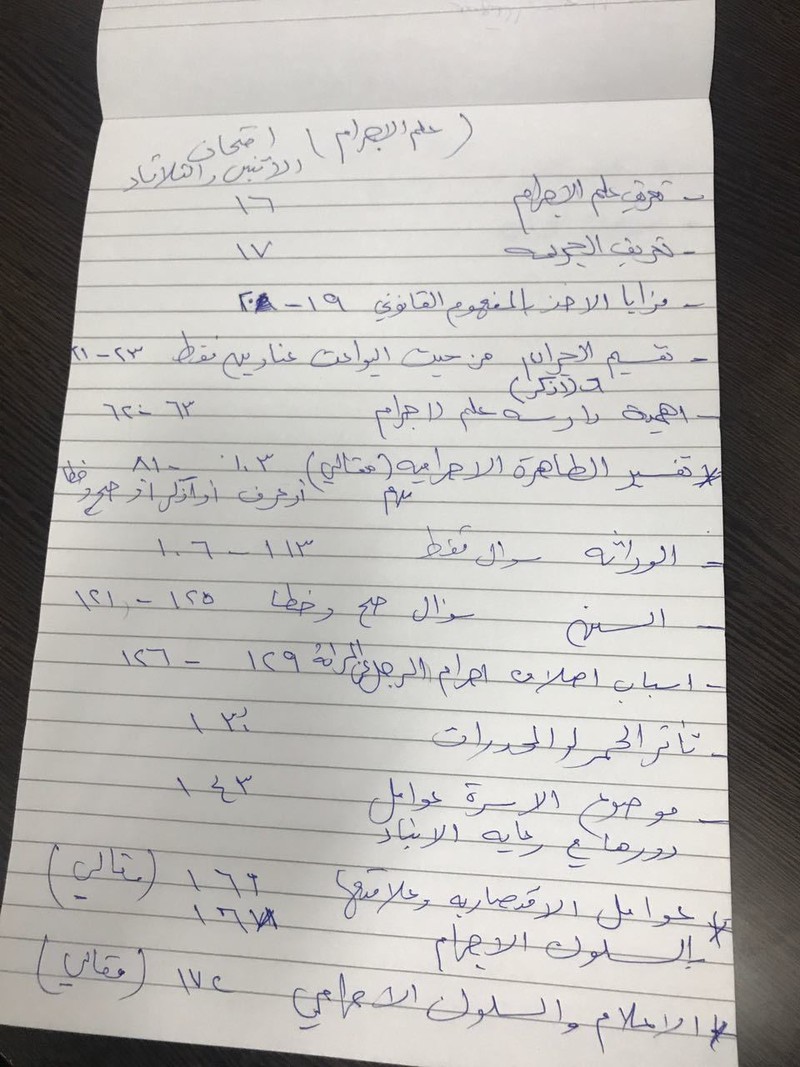 (علم الاجرام) امتحان
الاثنين والثلاثاء
- تعريف علم الاجرام ١٦
- تعريف الجريمه ١٧
- مزايا الاخذ بالمفهوم القانوني ١٩ -
- تقسيم الاجرام من حيث البواعث عناوين فقط ٢٣ - ٢١
(اذكر)
- اهمية دارسه علم الاجرام ٦٣ - ٦٢
* تفسير الظاهرة الاجراميه (مقالي) ١٠٣ - ٨١
مهم أو عرف أو أذكر أو صح وخطا
- الوراثه سوال فقط ١١٣ - ١٠٦
- السن سؤال صح وخطا ١٢٥ - ١٢١
- اسباب اختلاف اجرام الرجل عن المرأة ١٢٩ - ١٢٦
- تأثر الخمر او المخدرات ١٣٠
- موضوع الاسرة عوامل ١٤٣
دورها في رعايه الابناء
* عوامل الاقتصاديه وعلاقتها ١٦٦ (مقالي)
بالسلوك الاجرام ١٦٧
* الاعلام والسلوك الاجرامي ١٧٢ (مقالي)